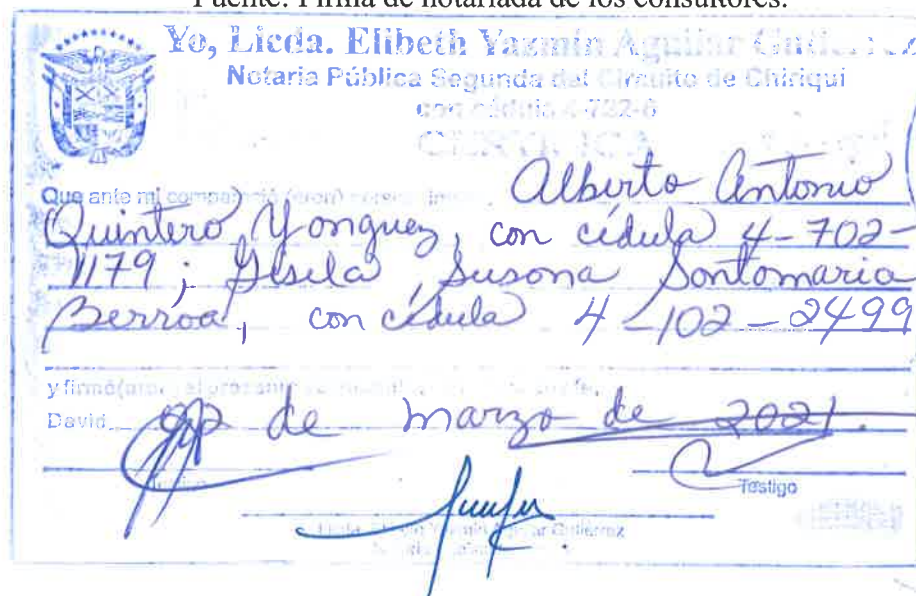 Fuente: Firma de notariada de los consultores.
Yo, Licda. Elibeth Yazmín Aguilar Gutierrez
Notaria Pública Segunda del Circuito de Chiriquí
con cédula 4-722-6
CERTIFICA
Que ante mi compareció (eron) Alberto Antonio
Quintero Yonguez, con cédula 4-702-
1179; Gisela Susana Santamaria
Berroa, con cédula 4-102-2499
y firmó(aron) el presente
David, de marzo de 2021.
Testigo
Licda. Elibeth Yazmín Aguilar Gutierrez